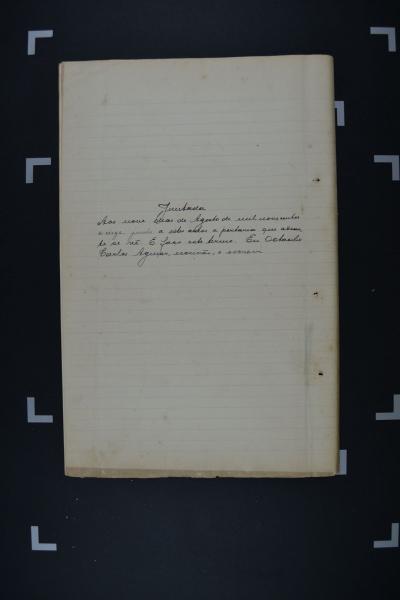 Juntada
Aos nove dias de Agosto de mil novecentos
e onze junto a estes autos a portaria que adean
te se vê. E faço este termo. Eu Octavio
Carlos Aguiar, escrivão, o escrevi